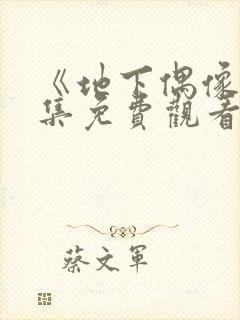 《地下偶像
集免費觀看
蔡文軍